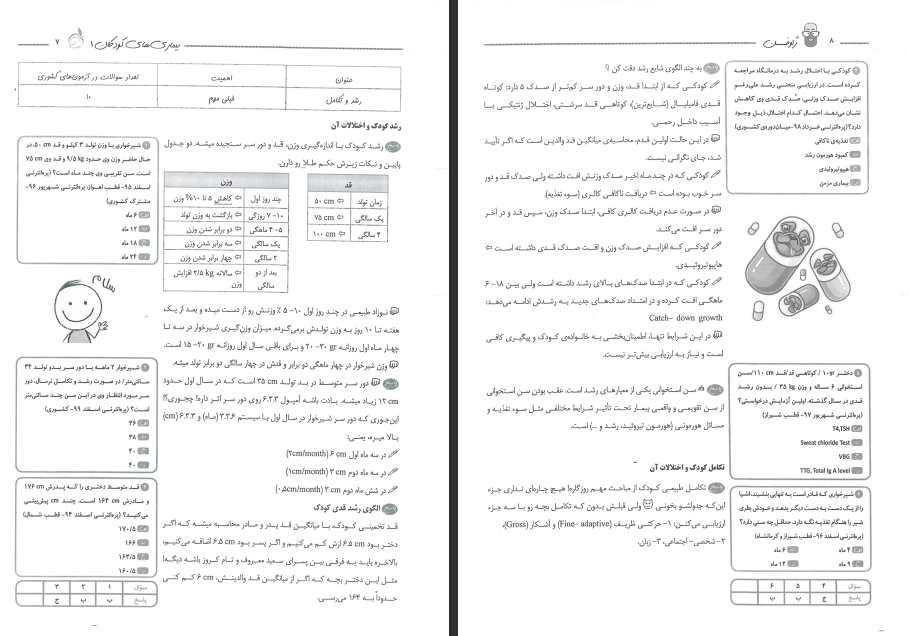 بیماری‌های کودکان ۱
۷
عنوان
اهمیت
تعداد سوالات در آزمون‌های کشوری
رشد و تکامل
خیلی مهم
۱۰
رشد کودک و اختلالات آن
رشد کودک با اندازه‌گیری وزن، قد و دور سر سنجیده میشه. دو جدول
پایین و نکات زیرش حکم طلا رو دارن.
قد
زمان تولد ⇦ ۵۰ cm
یک سالگی ⇦ ۷۵ cm
۴ سالگی ⇦ ۱۰۰ cm
وزن
چند روز اول ⇦ کاهش ۵ تا ۱۰% وزن
۷-۱۰ روزگی ⇦ بازگشت به وزن تولد
۴-۵ ماهگی ⇦ دو برابر شدن وزن
یک سالگی ⇦ سه برابر شدن وزن
۲ سالگی ⇦ چهار برابر شدن وزن
بعد از دو سالگی ⇦ سالانه ۲/۵ kg افزایش وزن
نوزاد طبیعی در چند روز اول ۱۰-۵ ٪ وزنش رو از دست میده و بعد از یک
هفته تا ۱۰ روز به وزن تولدش برمی‌گرده. میزان وزن‌گیری شیرخوار در سه تا
چهار ماه اول روزانه ۳۰-۲۰ gr و برای باقی سال اول روزانه ۲۰-۱۵ gr است.
وزن شیرخوار در چهار ماهگی دو برابر و قدش در چهار سالگی دو برابر تولد میشه.
دور سر متوسط در بدو تولد ۳۵ cm است که در سال اول حدود
۱۲ cm زیاد میشه. یادت باشه آمپول ۶.۳.۳ روی دور سر اثر داره! چجوری؟!
این‌جوری که دور سر شیرخوار در سال اول با سیستم ۳.۳.۶ (ماه) و ۶.۳.۳ (cm)
بالا میره، یعنی:
در سه ماه اول ۶ cm (۲cm/month)
در سه ماه دوم ۳ cm (۱cm/month)
در شش ماه دوم ۳ cm (۰٫۵cm/month)
الگوی رشد قدی کودک
قد تخمینی کودک با میانگین قد پدر و مادر محاسبه میشه که اگر
دختر بود ۶.۵ ازش کم می‌کنیم و اگر پسر بود ۶.۵ اضافه می‌کنیم،
بالاخره باید یه فرقی بین پسرای سعید معروف و تام کروز باشه دیگه!
مثل این دختر بچه که اگر از میانگین قد والدینش، ۶ cm کم کنی
حدوداً به ۱۶۴ می‌رسی.
۱ شیرخواری با وزن تولد ۳ کیلو و قد ۵۰ cm، در
حال حاضر وزن وی حدود ۹/۵ kg و قد وی ۷۵ cm
است. سن تقریبی وی چند ماه است؟ (پره‌انترنی
اسفند ۹۵- قطب اهواز، پره‌انترنی شهریور ۹۶-
مشترک کشوری)
الف ۶ ماه
ب ۱۲ ماه
ج ۱۸ ماه
د ۲۴ ماه
سلام
۲ شیرخوار ۲ ماهه با دور سر بدو تولد ۳۴
سانتی‌متر؛ در صورت رشد و تکامل نرمال، دور
سر مورد انتظار وی در این سن چند سانتی‌متر
است؟ (پره‌انترنی اسفند ۹۹- کشوری)
الف ۳۶
ب ۳۸
ج ۴۰
د ۴۰
۳ قد متوسط دختری را که پدرش ۱۷۶ cm
و مادرش ۱۶۴ cm است، چند cm پیش‌بینی
می‌کنید؟ (پره‌انترنی اسفند ۹۴- قطب شمال)
الف ۱۷۰/۵
ب ۱۶۶
ج ۱۶۳/۵
د ۱۶۰/۵
سؤال ۱ ۲ ۳
پاسخ ب ب ج
۸
ژنوفسن
به چند الگوی شایع رشد دقت کن؟
کودکی که از ابتدا قد، وزن و دور سر کم‌تر از صدک ۵ دارد: کوتاه
قدی فامیلیال (شایع‌ترین)، کوتاهی قد سرشتی، اختلال ژنتیکی یا
آسیب داخل رحمی.
در این حالت اولین قدم، محاسبه‌ی میانگین قد والدین است که اگر تأیید
شد، جای نگرانی نیست.
کودکی که در چند ماه اخیر صدک وزنش افت داشته ولی صدک قد و دور
سر خوب بوده است ⇦ دریافت ناکافی کالری (سوء تغذیه).
در صورت عدم دریافت کالری کافی، ابتدا صدک وزن، سپس قد و در آخر
دور سر افت می‌کند.
کودکی که افزایش صدک وزن و افت صدک قدی داشته است ⇦
هایپوتیروئیدی.
کودکی که در ابتدا صدک‌های بالای رشد داشته است ولی بین ۱۸-۶
ماهگی افت کرده و در امتداد صدک‌های جدید به رشدش ادامه می‌دهد:
Catch- down growth
در این شرایط تنها، اطمینان‌بخشی به خانواده‌ی کودک و پیگیری کافی
است و نیاز به ارزیابی بیش‌تر نیست.
سن استخوانی یکی از معیارهای رشد است. عقب بودن سن استخوانی
از سن تقویمی و واقعی بیمار تحت تأثیر شرایط مختلفی مثل سوء تغذیه و
مسائل هورمونی (هورمون تیروئید، رشد و ...) است.
تکامل کودک و اختلالات آن
تکامل طبیعی کودک از مباحث مهم روزگاره! هیچ چاره‌ای نداری جزء
این‌که جدولشو بخونی ولی قبلش بدون که تکامل بچه رو با سه جزء
ارزیابی می‌کنن: ۱- حرکتی ظریف (Fine- adaptive) و آشکار (Gross)،
۲- شخصی- اجتماعی، ۳- زبان.
کودکی با اختلال رشد به درمانگاه مراجعه
کرده است. در ارزیابی منحنی رشد علی‌رغم
افزایش صدک وزنی، صدک قدی وی کاهش
نشان می‌دهد. احتمال کدام اختلال ذیل وجود
دارد؟ (پره‌انترنی خرداد ۹۸- میان‌دوره‌ی کشوری)
الف تغذیه‌ی ناکافی
ب کمبود هورمون رشد
ج هیپوتیروئیدی
د بیماری مزمن
دختر ۱۰yr / کوتاهی قد/قد ۱۱۰ cm/سن
استخوانی ۶ ساله و وزن ۳۵ kg / بدون رشد
قدی در سال گذشته. اولین آزمایش درخواستی؟
(پره‌انترنی شهریور ۹۷- قطب شیراز)
الف T4,TSH
ب Sweat chloride Test
ج VBG
د TTG, Total Ig A level
شیرخواری که قادر است به تنهایی بنشیند، اشیا
را از یک دست به دست دیگر بدهد و خودش بطری
شیر را هنگام تغذیه نگه دارد، حداقل چه سنی دارد؟
(پره‌انترنی اسفند ۹۶- قطب شیراز و کرمانشاه)
الف ۴ ماه
ب ۶ ماه
ج ۹ ماه
د ۱۲ ماه
سؤال ۴ ۵ ۶
پاسخ ج ب ب